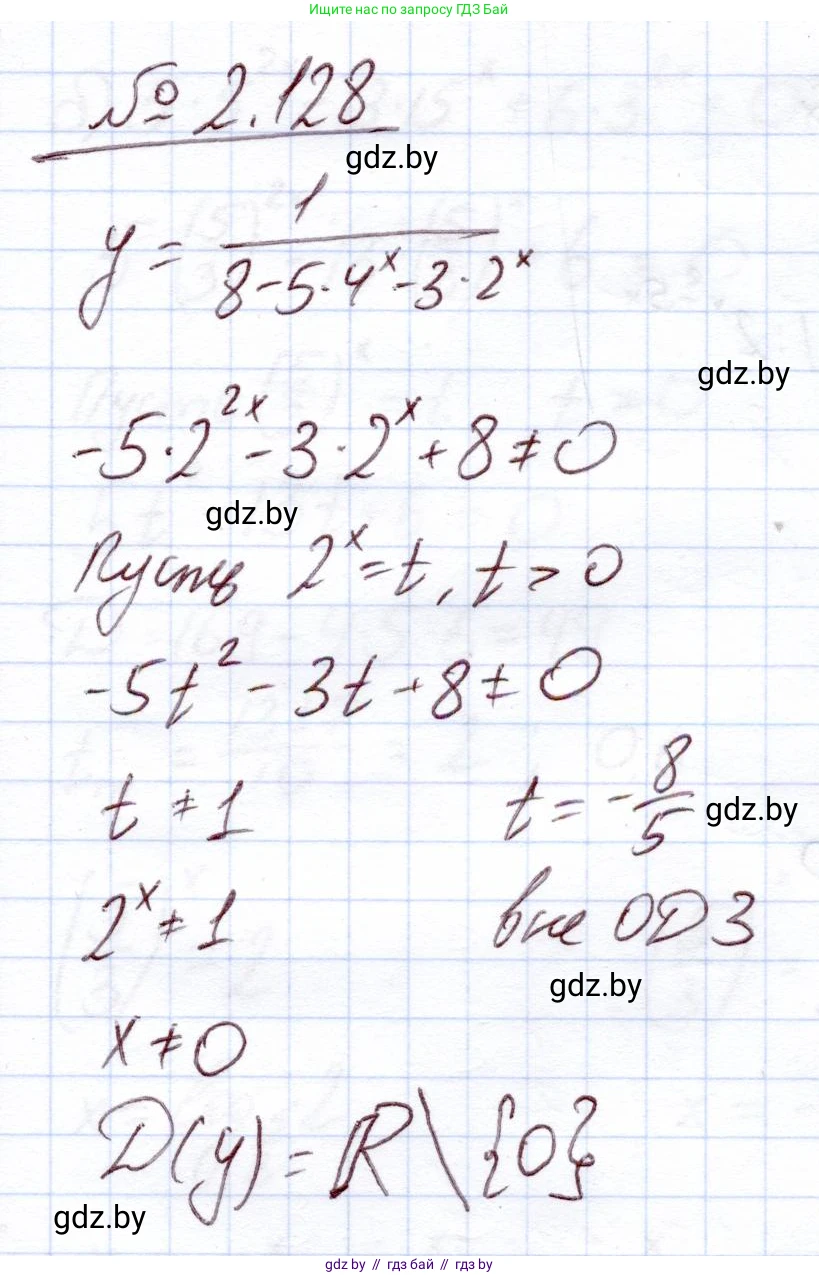 Ищите нас по запросу ГДЗ Бай
№ 2.128
gdz.by
y = 1/(8-5·4^x-3·2^x)
gdz.by
-5·2^(2x) - 3·2^x + 8 ≠ 0
gdz.by
Пусть 2^x = t, t > 0
-5t² - 3t + 8 ≠ 0
t ≠ 1 t = -8/5 gdz.by
2^x ≠ 1 вне ОДЗ
gdz.by
x ≠ 0
D(y) = ℝ \ {0}
gdz.by
gdz.by // гдз бай // гдз by